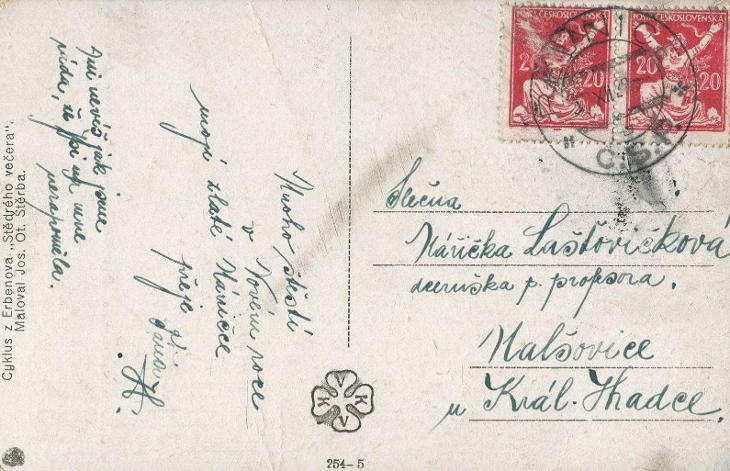 Ani nevíš jak jsme
ráda, že jsi na mne
nezapoměla.
Mnoho štěstí
v Novém roce
mojí zlaté
přeje
Cyklus z Erbenova „Štědrého večera“.
Maloval Jos. Ot. Štěrba.
V K V K
254-5
POŠTA ČESKOSLOVENSKÁ
20 20
POŠTA ČESKOSLOVENSKÁ
20 20
Č.S.R.
Slečna
Laštovičková
dceruška p. profesora.
Malšovice
u Král. Hradce.